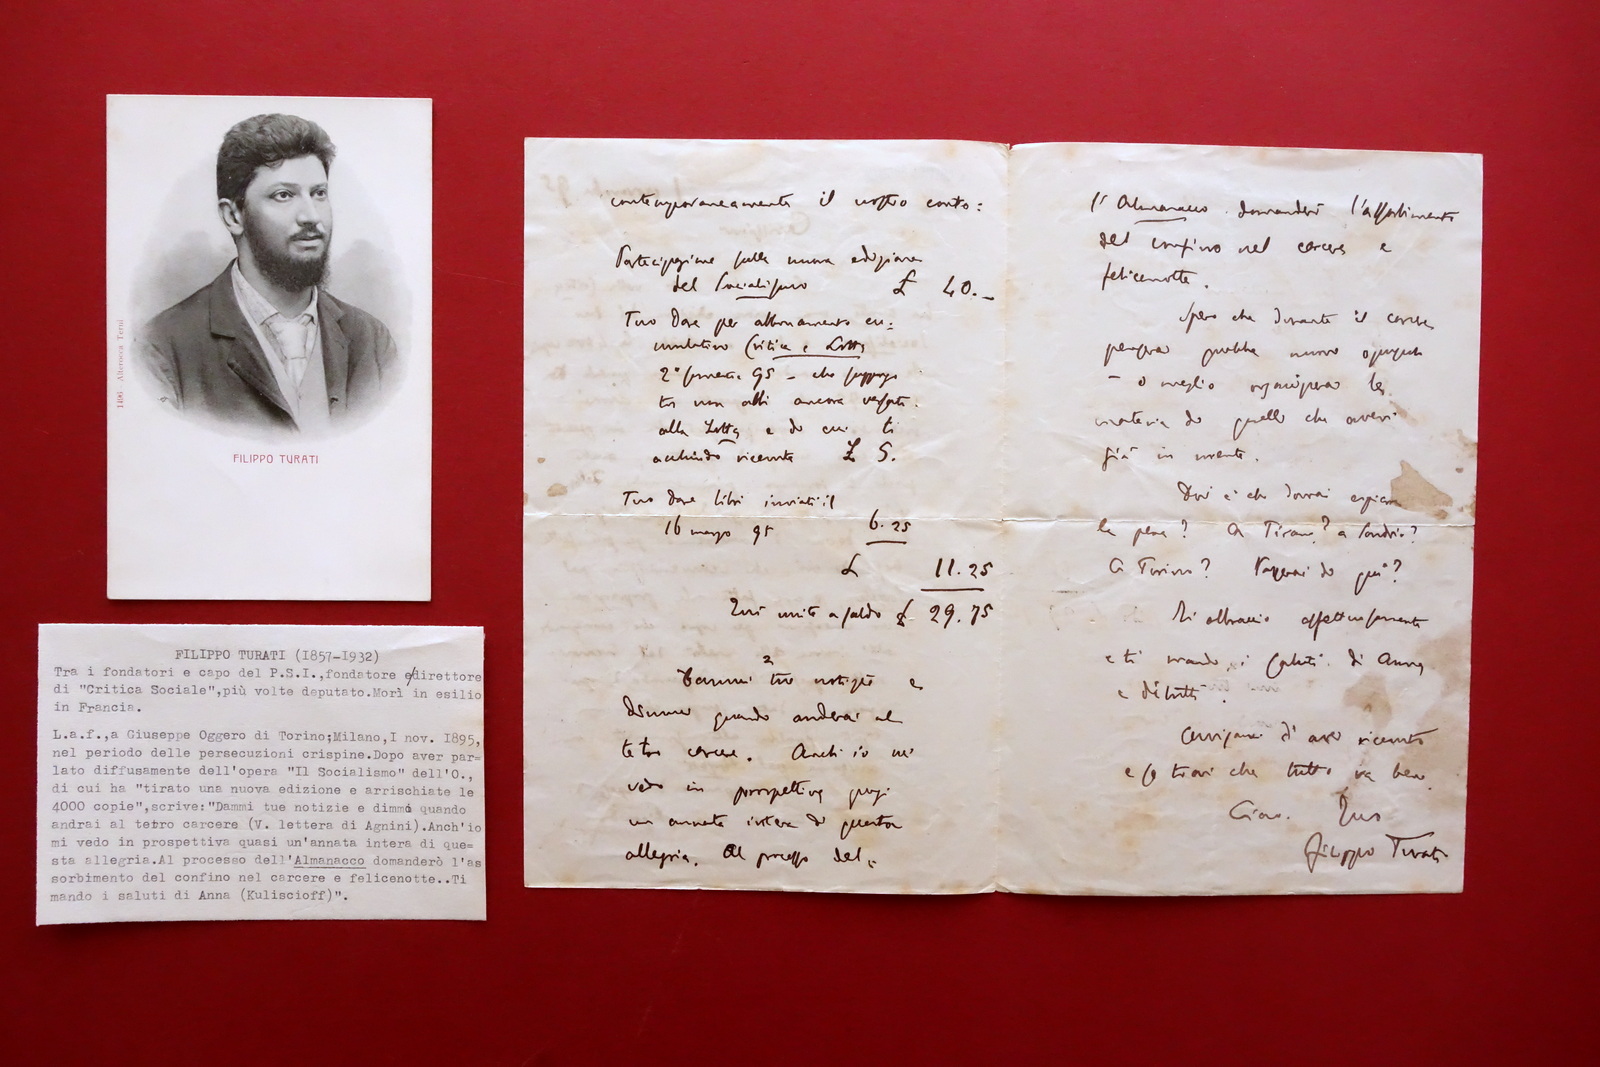 1496 - Alterocca Terni
FILIPPO TURATI
FILIPPO TURATI (1857-1932)
Tra i fondatori e capo del P.S.I.,fondatore e/direttore
di "Critica Sociale",più volte deputato.Morì in esilio
in Francia.
L.a.f.,a Giuseppe Oggero di Torino;Milano,I nov. 1895,
nel periodo delle persecuzioni crispine.Dopo aver par=
lato diffusamente dell'opera "Il Socialismo" dell'O.,
di cui ha "tirato una nuova edizione e arrischiate le
4000 copie",scrive:"Dammi tue notizie e dimmi quando
andrai al tetro carcere (V. lettera di Agnini).Anch'io
mi vedo in prospettiva quasi un'annata intera di que=
sta allegria.Al processo dell'Almanacco domanderò l'as
sorbimento del confino nel carcere e felicenotte..Ti
mando i saluti di Anna (Kuliscioff)".
contemporaneamente il nostro conto:
Partecipazione sulla nuova edizione
del Socialismo £ 40.—
Tuo Dare per abbonamento cu=
mulativo Critica e Lotta
2° semestre 95 – che suppongo
tu non abbi ancora versato
alla Lotta e di cui ti
accludo ricevuta £ 5.
Tuo Dare libri inviati il
16 marzo 95 6.25
£ 11.25
Qui unite a saldo £ 29.75
Dammi tue notizie e
dimmi quando anderai al
tetro carcere. Anch'io mi
vedo in prospettiva quasi
un annata intera di questa
allegria. Al processo del=
l'Almanacco domanderò l'assorbimento
del confino nel carcere e
felicenotte.
Spero che durante il carcere
penserai qualche nuovo opuscolo
– o meglio
materia di quello che avevi
già in mente.
Dove è che dovrai espiare
la pena? A Tirano? a Sondrio?
A Torino? Passerai di qui?
Ti abbraccio affettuosamente
e ti mando i saluti di Anna
e di tutti.
di aver ricevuto
e se trovi che tutto va bene.
Ciao. Tuo
Filippo Turati